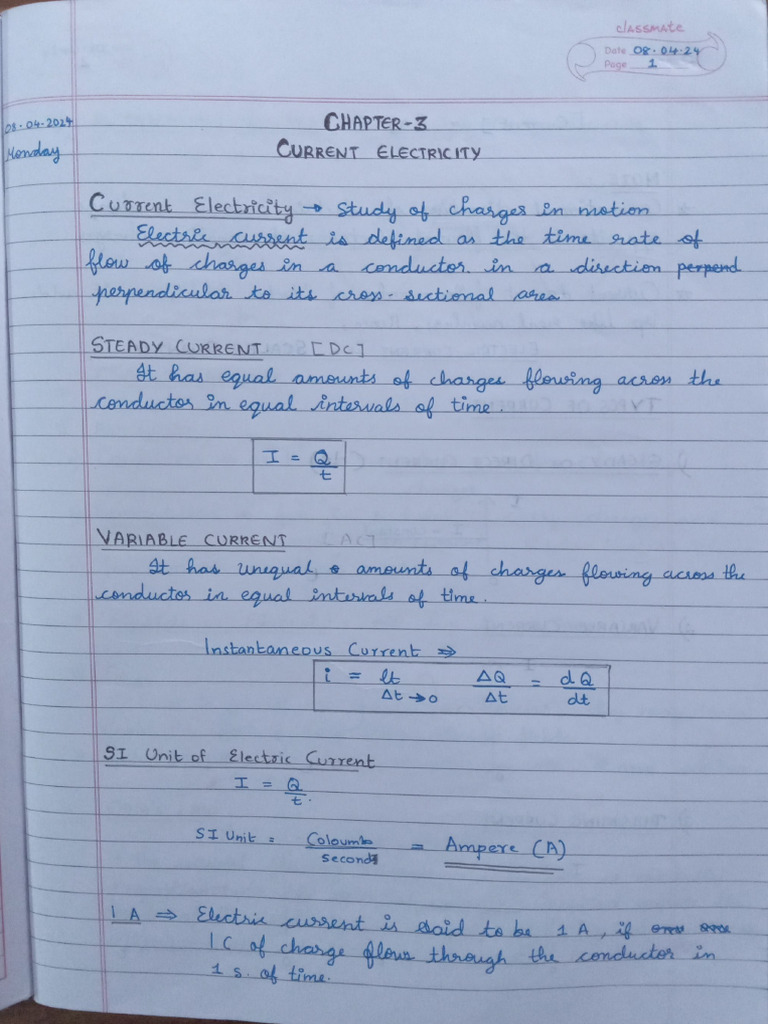 classmate
Date 08.04.24
Page 1
08-04-2024
Monday
CHAPTER-3
CURRENT ELECTRICITY
Current Electricity → Study of charges in motion
Electric current is defined as the time rate of
flow of charges in a conductor in a direction perpend
perpendicular to its cross-sectional area
STEADY CURRENT [DC]
It has equal amounts of charges flowing across the
conductor in equal intervals of time.
I = Q/t
VARIABLE CURRENT
It has unequal amounts of charges flowing across the
conductor in equal intervals of time.
Instantaneous Current ⇒
i = lt Δt→0 ΔQ/Δt = dQ/dt
SI Unit of Electric Current
I = Q/t.
SI Unit = Coloumb/second = Ampere (A)
1 A ⇒ Electric current is said to be 1 A, if
1 C of charge flows through the conductor in
1 s. of time.